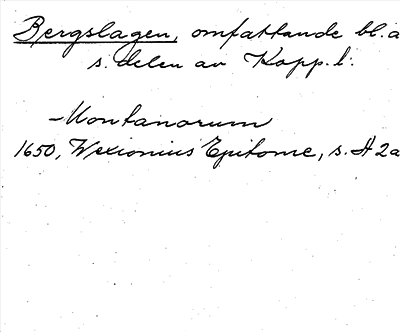 Bergslagen, omfattande bl.a
s. delen av Kopp. l.
-Montanorum
1650, Wexionius Epitome, s. A 2a